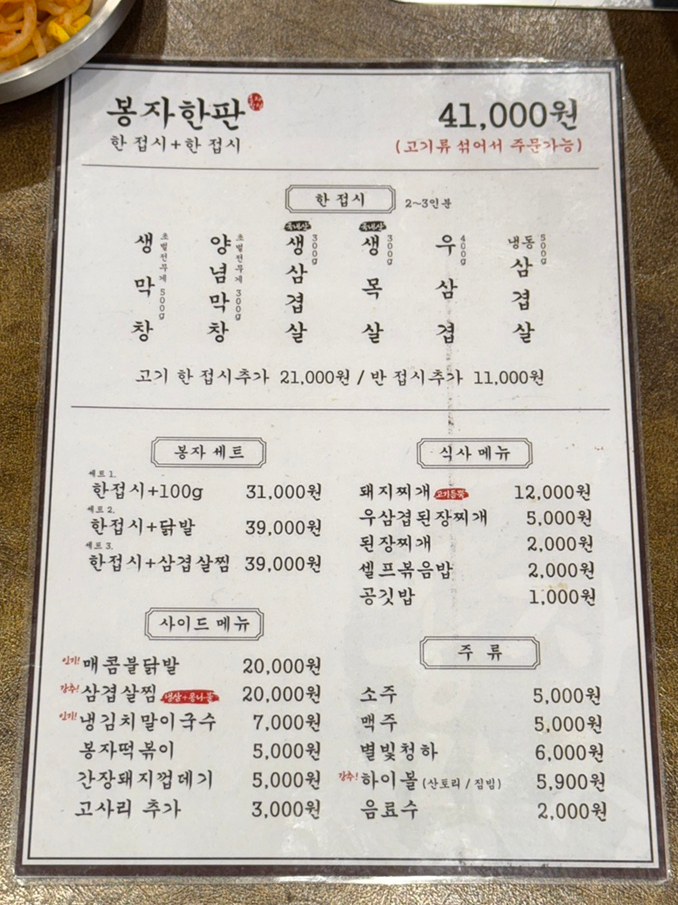 봉자한판 41,000원
한 접시+한 접시 (고기류 섞어서 주문가능)
한 접시 2~3인분
생막창 초벌전무게 500g
양념막창 초벌전무게 300g
국내산 생삼겹살 300g
국내산 생목살 300g
우삼겹 400g
냉동삼겹살 500g
고기 한 접시추가 21,000원 / 반 접시추가 11,000원
봉자 세트
세트 1.
한접시+100g 31,000원
세트 2.
한접시+닭발 39,000원
세트 3.
한접시+삼겹살찜 39,000원
사이드 메뉴
인기! 매콤불닭발 20,000원
강추! 삼겹살찜 냉삼+콩나물 20,000원
인기! 냉김치말이국수 7,000원
봉자떡볶이 5,000원
간장돼지껍데기 5,000원
고사리 추가 3,000원
식사 메뉴
돼지찌개 고기듬뿍 12,000원
우삼겹된장찌개 5,000원
된장찌개 2,000원
셀프볶음밥 2,000원
공깃밥 1,000원
주 류
소주 5,000원
맥주 5,000원
별빛청하 6,000원
강추! 하이볼 (산토리 / 짐빔) 5,900원
음료수 2,000원